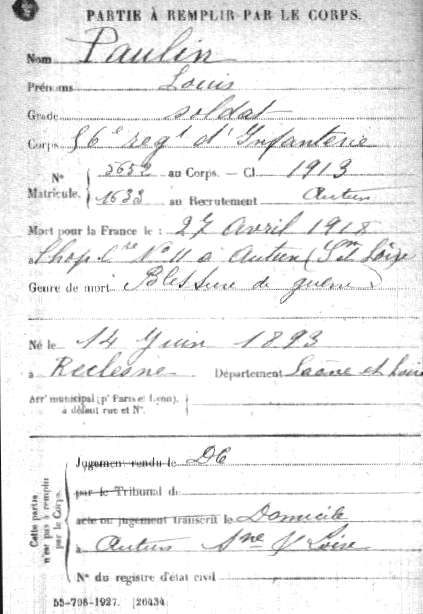 PARTIE À REMPLIR PAR LE CORPS.
Nom Paulin
Prénoms Louis
Grade soldat
Corps 56e regt d'Infanterie
N° 5652 au Corps. — Cl. 1913
Matricule. 1633 au Recrutement Autun
Mort pour la France le : 27 Avril 1918
à l'hop. N° 11 à Autun (Sne et Loire)
Genre de mort Blessure de guerre
Né le 14 Juin 1893
à Reclesne Département Saône et Loire
Arrt municipal (pr Paris et Lyon),
à défaut rue et N°.
Cette partie
n'est pas à remplir
par le Corps.
Jugement rendu le DC
par le Tribunal de
acte ou jugement transcrit le Domicile
à Autun Sne & Loire
N° du registre d'état civil
55-708-1927. [26434]